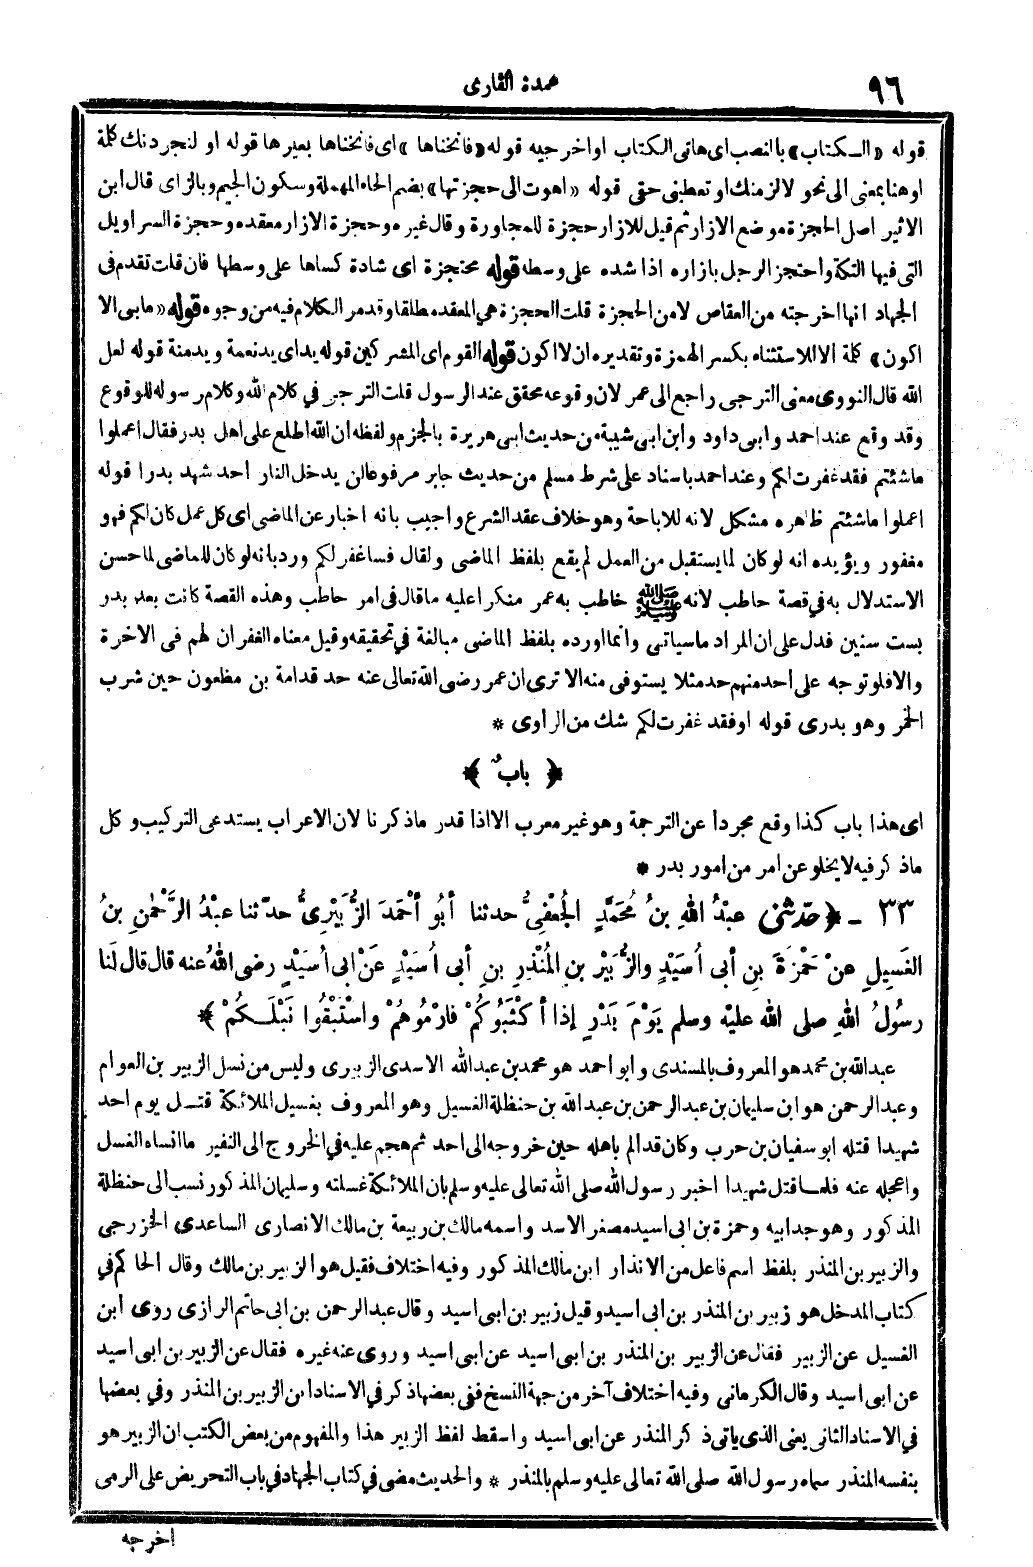 ٩٦
عمدة القارى
قوله «الـكتاب» بالنصب اى هاتى الكتاب او اخرجيه قوله «فانخناها» اى فانخناها بعيرها قوله او لنجردنك كلمة
او هنا بمعنى الى نحو لالزمنك او تعطينى حقى قوله «اهوت الى حجزتها» بضم الحاء المهملة وسكون الجيم وبالزاى قال ابن
الاثير اصل الحجزة موضع الازار ثم قيل للازار حجزة للمجاورة وقال غيره وحجزة الازار معقده وحجزة السراويل
التى فيها التكة واحتجز الرجل بازاره اذا شده على وسطه قوله محتجزة اى شادة كساها على وسطها فان قلت تقدم فى
الجهاد انها اخرجته من العقاص لا من الحجزة قلت الحجزة هي المعقد مطلقا وقد مر الكلام فيه من وجوه قوله «ما بى الا
اكون» كلمة الا للاستثناء بكسر الهمزة وتقديره ان لا اكون قوله القوم اى المشركين قوله يد اى يد نعمة ويد منة قوله لعل
الله قال النووى معنى الترجى راجع الى عمر لان وقوعه محقق عند الرسول قلت الترجى في كلام الله وكلام رسوله للوقوع
وقد وقع عند احمد وابى داود وابن ابى شيبة من حديث ابى هريرة بالجزم ولفظه ان الله اطلع على اهل بدر فقال اعملوا
ما شئتم فقد غفرت لكم وعند احمد باسناد على شرط مسلم من حديث جابر مرفوعا لن يدخل النار احد شهد بدرا قوله
اعملوا ما شئتم ظاهره مشكل لانه للاباحة وهو خلاف عقد الشرع واجيب بانه اخبار عن الماضى اى كل عمل كان لكم فهو
مغفور ويؤيده انه لو كان لما يستقبل من العمل لم يقع بلفظ الماضى ولقال فساغفر لكم ورد بانه لو كان للماضى لما حسن
الاستدلال به في قصة حاطب لانه ﷺ خاطب به عمر منكرا عليه ما قال فى امر حاطب وهذه القصة كانت بعد بدر
بست سنين فدل على ان المراد ما سياتى وانما اورده بلفظ الماضى مبالغة في تحقيقه وقيل معناه الغفران لهم فى الاخرة
والا فلو توجه على احد منهم حد مثلا يستوفى منه الا ترى ان عمر رضى الله تعالى عنه حد قدامة بن مظعون حين شرب
الخمر وهو بدرى قوله او فقد غفرت لكم شك من الراوى *
﴿ بابٌ ﴾
اى هذا باب كذا وقع مجردا عن الترجمة وهو غير معرب الا اذا قدر ما ذكرنا لان الاعراب يستدعى التركيب وكل
ما ذكر فيه لا يخلو عن امر من امور بدر *
٣٣ ـ ﴿ حدثنى عبْدُ اللهِ بنُ مُحَمَّدٍ الجُعْفِيُّ حدثنا أبُو أحْمَدَ الزُّبَيْرِيُّ حدّثنا عبْدُ الرَّحْمٰنِ بنُ
الغَسِيلِ عنْ حَمْزَةَ بنِ أبى أُسَيْدٍ والزُّبَيْرِ بنِ المُنْذِرِ بنِ أبى أُسَيْدٍ عَنْ ابى أُسَيْدٍ رضى اللهُ عنه قال قال لَنا
رسُولُ اللهِ صلى الله عليْه وسلم يَوْمَ بَدْرٍ إذا أكْثَبُوكُمْ فارْمُوهُمْ واسْتَبْقُوا نَبْلَـكُمْ ﴾
عبد الله بن محمد هو المعروف بالمسندى وابو احمد هو محمد بن عبد الله الاسدى الزبيرى وليس من نسل الزبير بن العوام
وعبد الرحمن هو ابن سليمان بن عبد الرحمن بن عبد الله بن حنظلة الغسيل وهو المعروف بغسيل الملائكة قتـل يوم احد
شهيدا قتله ابو سفيان بن حرب وكان قد الم باهله حين خروجه الى احد ثم هجم عليه في الخروج الى النفير ما انساه الغسل
واعجله عنه فلما قتل شهيدا اخبر رسول الله صلى الله تعالى عليه وسلم بان الملائكة غسلته وسليمان المذكور نسب الى حنظلة
المذكور وهو جد ابيه وحمزة بن ابى اسيد مصغر الاسد واسمه مالك بن ربيعة بن مالك الانصارى الساعدى الخزرجى
والزبير بن المنذر بلفظ اسم فاعل من الانذار ابن مالك المذكور وفيه اختلاف فقيل هو الزبير بن مالك وقال الحاكم في
كتاب المدخل هو زبير بن المنذر بن ابى اسيد وقيل زبير بن ابى اسيد وقال عبد الرحمن بن ابى حاتم الرازى روى ابن
الغسيل عن الزبير فقال عن الزبير بن المنذر بن ابى اسيد عن ابى اسيد وروى عنه غيره فقال عن الزبير بن ابى اسيد
عن ابى اسيد وقال الكرمانى وفيه اختلاف آخر من جهة النسخ ففى بعضها ذكر في الاسناد ابن الزبير بن المنذر وفي بعضها
في الاسناد الثانى يعنى الذى ياتى ذكر المنذر عن ابى اسيد واسقط لفظ الزبير هذا والمفهوم من بعض الكتب ان الزبير هو
بنفسه المنذر سماه رسول الله صلى الله تعالى عليه وسلم بالمنذر * والحديث مضى في كتاب الجهاد فى باب التحريض على الرمى
اخرجه